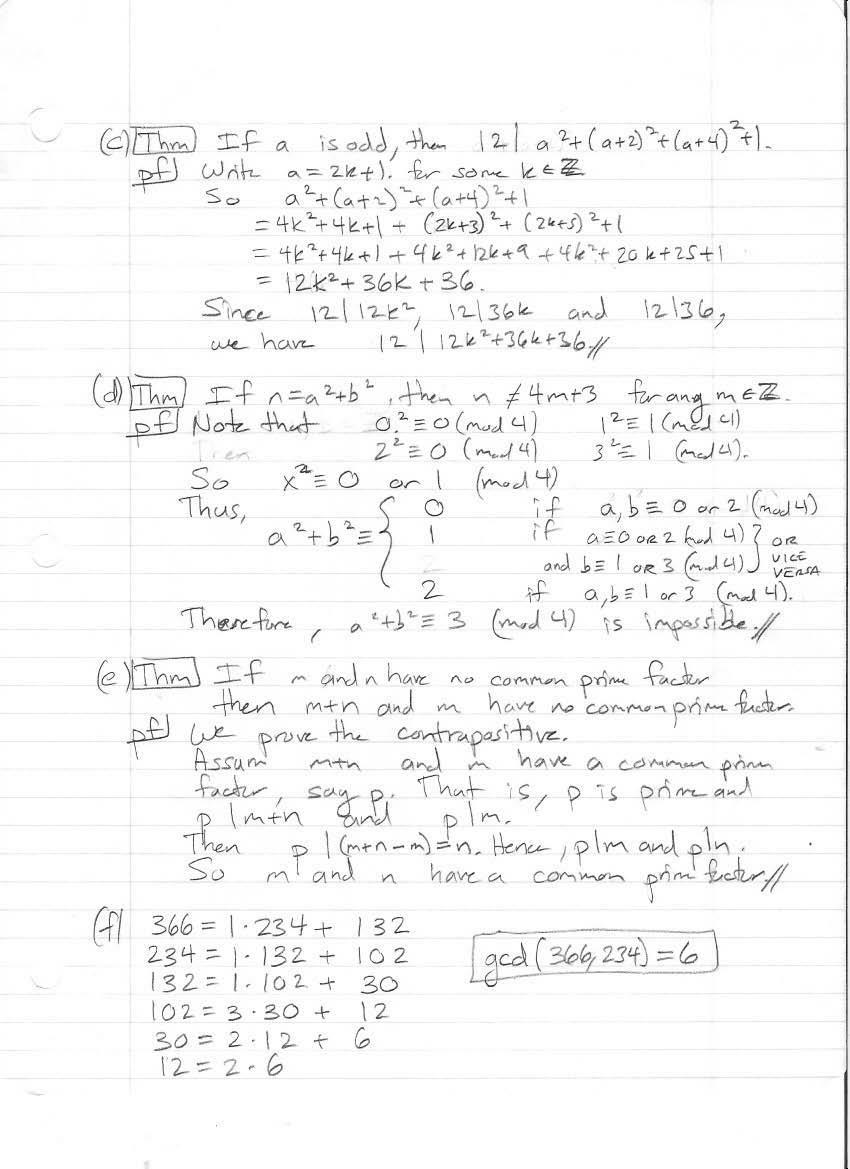 (c) Thm If a is odd, then 12 | a²+(a+2)²+(a+4)²+1.
pf) Write a = 2k+1. for some k∈ℤ
So a²+(a+2)²+(a+4)²+1
= 4k²+4k+1 + (2k+3)²+ (2k+5)²+1
= 4k²+4k+1 + 4k²+12k+9 + 4k²+ 20k+25+1
= 12k²+ 36k + 36.
Since 12|12k², 12|36k and 12|36,
we have 12 | 12k²+36k+36.//
(d) Thm If n=a²+b², then n ≠ 4m+3 for any m∈ℤ.
pf) Note that 0² ≡ 0 (mod 4) 1² ≡ 1 (mod 4)
Then 2² ≡ 0 (mod 4) 3² ≡ 1 (mod 4).
So x² ≡ 0 or 1 (mod 4)
Thus, 0 if a,b ≡ 0 or 2 (mod 4)
a²+b² ≡ { 1 if a≡0 OR 2 (mod 4) } OR
and b≡1 OR 3 (mod 4) VICE VERSA
2 if a,b≡1 or 3 (mod 4).
Therefore, a²+b² ≡ 3 (mod 4) is impossible.//
(e) Thm If m and n have no common prime factor
then m+n and m have no common prime factor.
pf) We prove the contrapositive.
Assum m+n and m have a common prim
factor, say p. That is, p is prime and
p | m+n and p|m.
Then p | (m+n-m)=n. Hence, p|m and p|n.
So m and n have a common prim factor.//
(f) 366 = 1·234 + 132
234 = 1·132 + 102
132 = 1·102 + 30
102 = 3·30 + 12
30 = 2·12 + 6
12 = 2·6
gcd(366,234) = 6